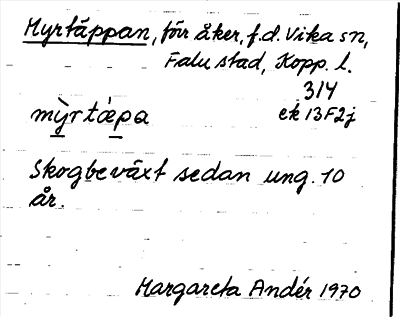 Myrtäppan, förr åker, f.d. Vika sn,
Falu stad, Kopp. l.
314
mỳrtä̀pa ek 13F2j
Skogbeväxt sedan ung. 10
år.
Margareta Andér 1970